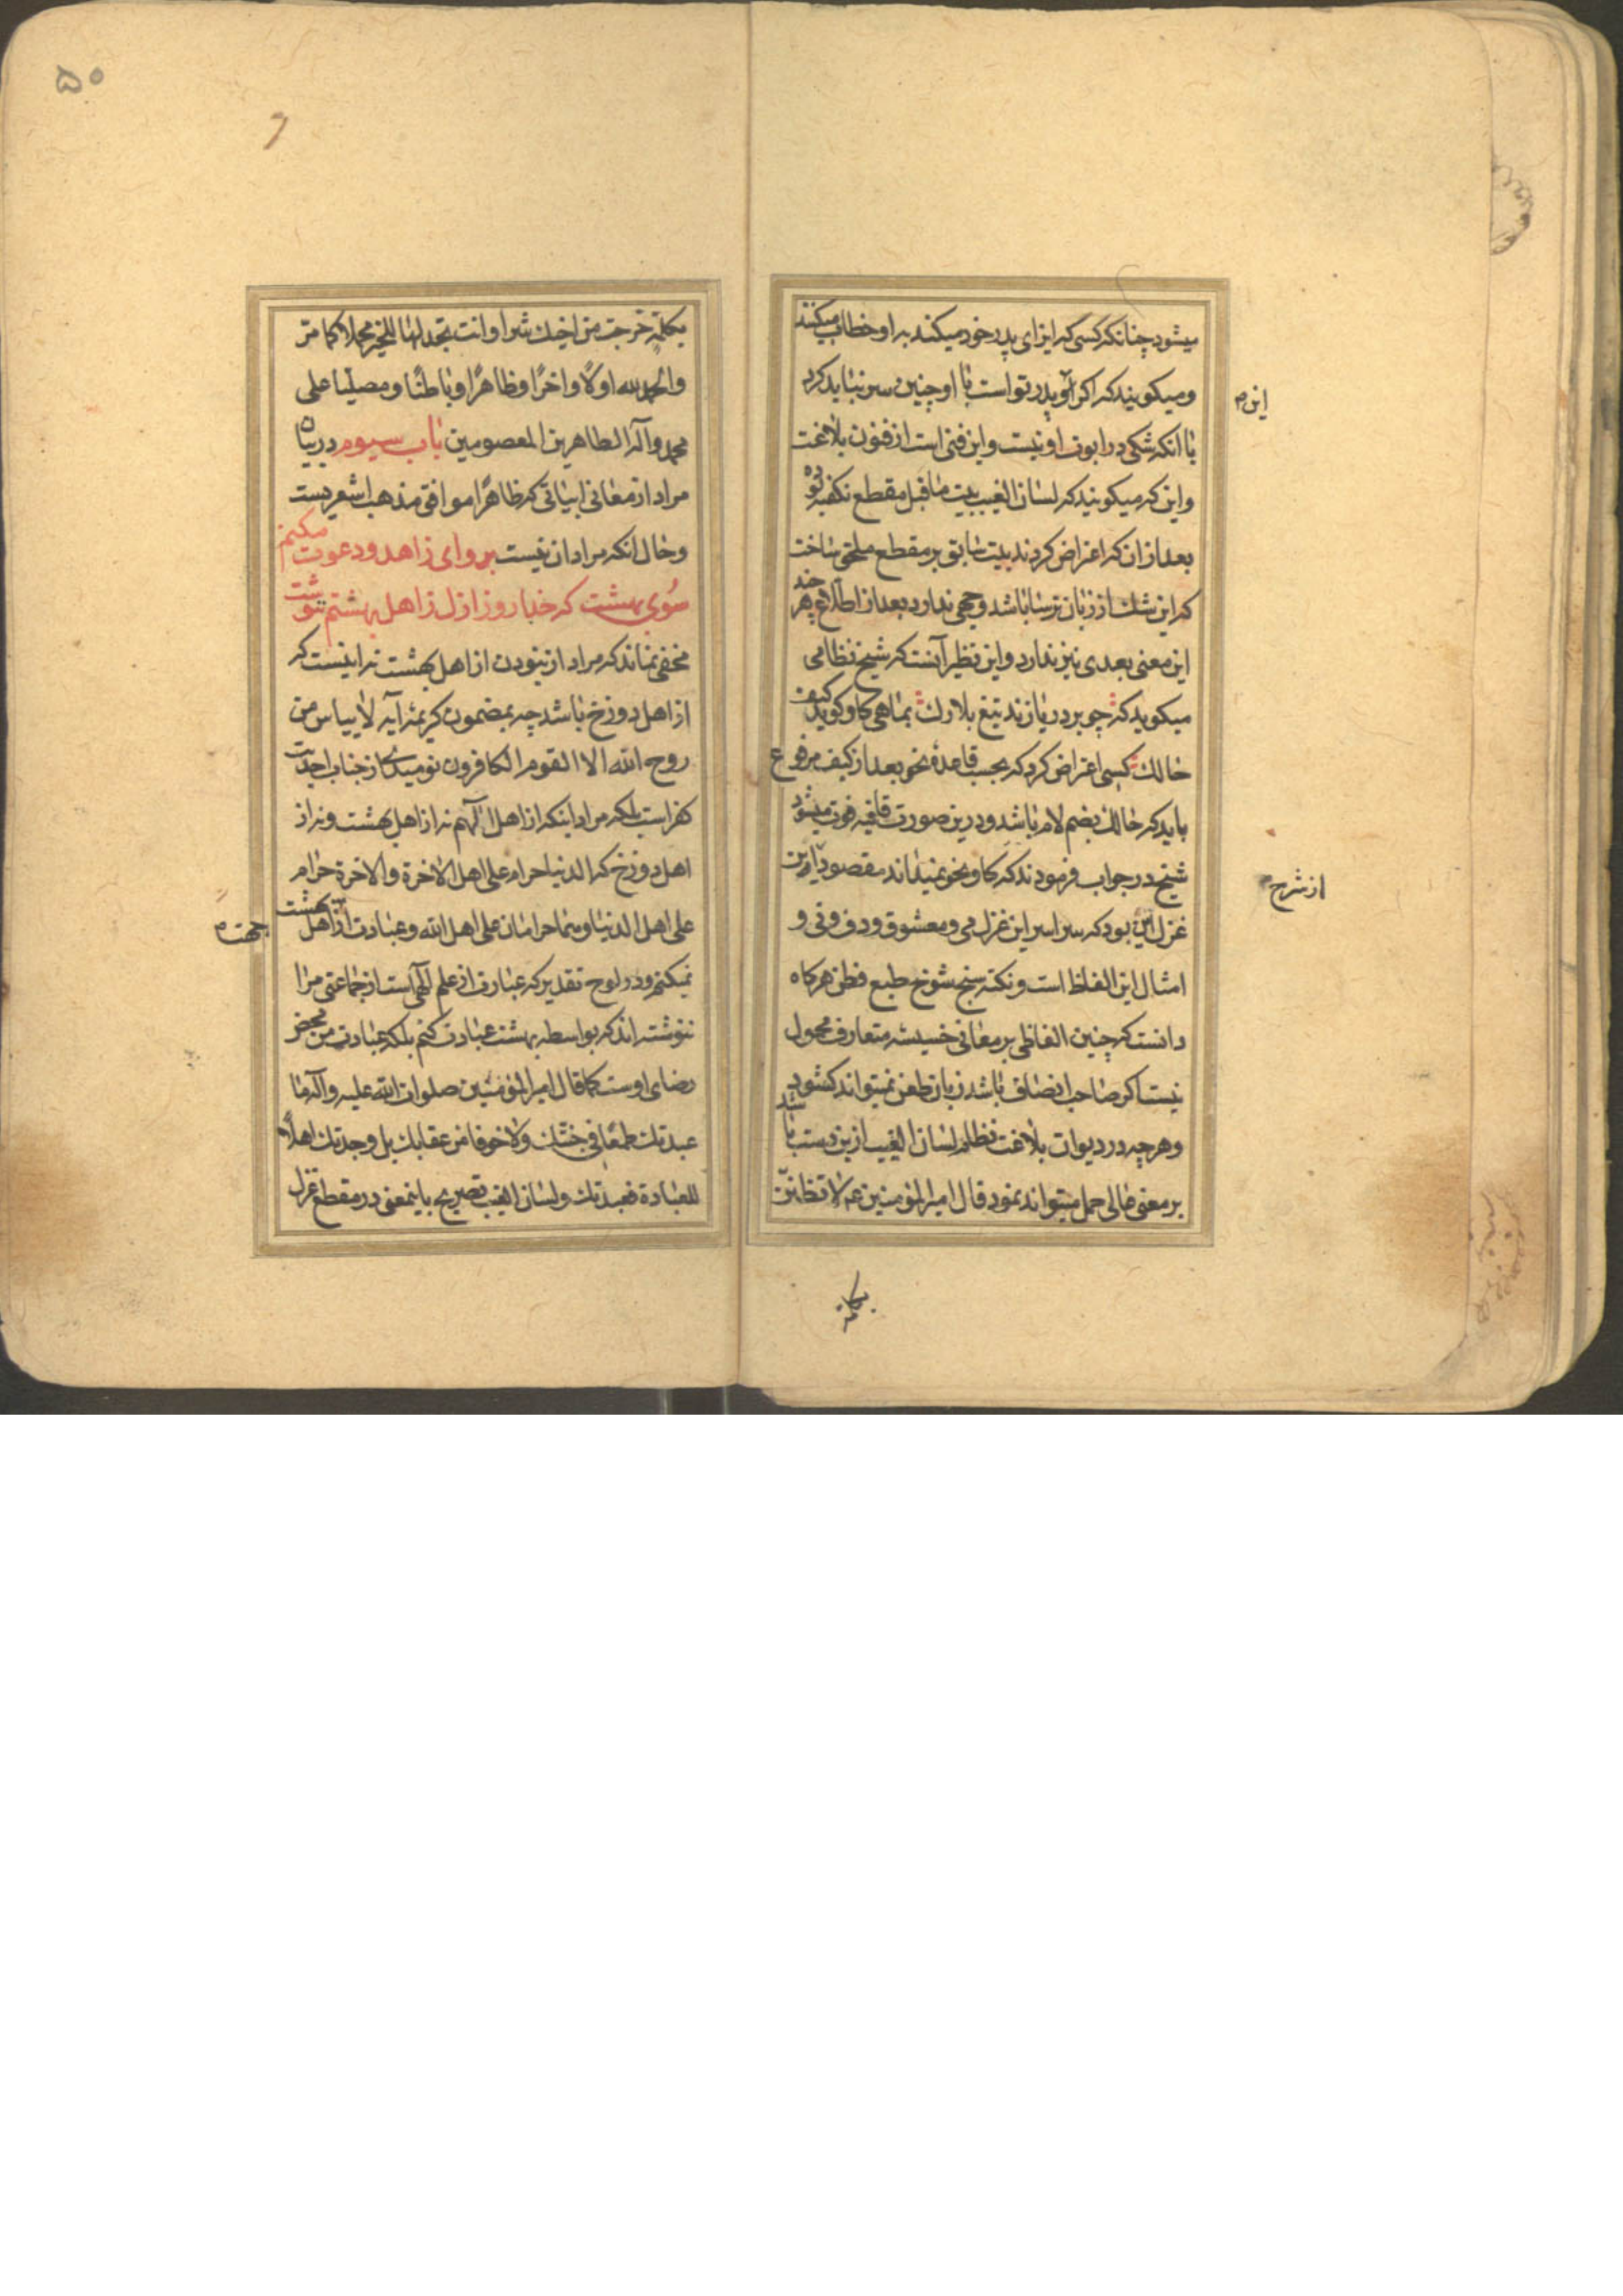 میشود چنانکه کسی که ایزای پدر خود میکند به او خطاب میکنند
ومیکویند که اکر او پدر تو است با او چنین سر نباید کرد
این
با انکه شکی در ابوت او نیست و این فنی است از فنون بلاغت
و این که میکویند که لسان الغیب بیت ماقبل مقطع نکفته بوده
بعد از ان که اعتراض کردند بیت سابق بر مقطع ملحق ساخت
که این شک از زبان ترسا باشد وجهی ندارد بعد از اطلاع بهر چند
این معنی بعدی نیز ندارد و این نظیر آنست که شیخ نظامی
میکوید که چو بر دریا زند تیغ بلارک بماهی کاو کوید کیف
حالک کسی اعتراض کرد که بحسب قاعدهٔ نحو بعد از کیف مرفوع
باید که حالک بضم لام باشد و درین صورت قافیه فوت میشود
شیخ در جواب فرمودند که کاو نحو نمیداند مقصود از این
از شرح
غزل این بود که سراسر این غزل می و معشوق و دف و نی و
امثال این الفاظ است و نکته سنج شوخ طبع فطن هر کاه
دانست که چنین الفاظی بر معانی خسیسه متعارف محمول
نیست اکر صاحب انصاف باشد زبان طعن نمیتواند کشود
وهر چه در دیوان بلاغت نظام لسان الغیب ازین دست باشد
بر معنی حالی حمل میتواند نمود قال امیر المؤمنین ع لا تظننّ
بکلمة
۵۰
بکلمة خرجت من اخیک شرا و انت تجد لها للخیر محملا کما مر
والحمد لله اولًا واخرًا وظاهرًا وباطنًا ومصلیا علی
محمد وآله الطاهرین المعصومین باب سیوم در بیان
مراد از معانی ابیاتی که ظاهرًا موافق مذهب اشعریست
وحال انکه مراد ان نیست برو ای زاهد و دعوت مکنم
سوی بهشت که خدا روز ازل ز اهل بهشتم ننوشت
مخفی نماند که مراد از نبودن از اهل بهشت نه اینست که
از اهل دوزخ باشد چه بمضمون کریمهٔ آیه لا ییاس من
روح الله الا القوم الکافرون نومیدی از جناب احدیت
کفر است بلکه مراد اینکه از اهل اللهم نه از اهل بهشت ونه از
اهل دوزخ که الدنیا حرام علی اهل الاخرة والاخرة حرام
علی اهل الدنیا وهما حرامان علی اهل الله و عبادت از اهل بهشت
جهت
نمیکنم و در لوح تقدیر که عبارت از علم الهی است از جماعتی مرا
ننوشته اند که بواسطه بهشت عبادت کنم بلکه عبادت من محض
رضای اوست کما قال امیر المؤمنین صلوات الله علیه وآله ما
عبدتک طمعًا فی جنتک ولا خوفا من عقابک بل وجدتک اهلًا
للعبادة فعبدتک ولسان الغیب تصریح باینمعنی در مقطع غزل